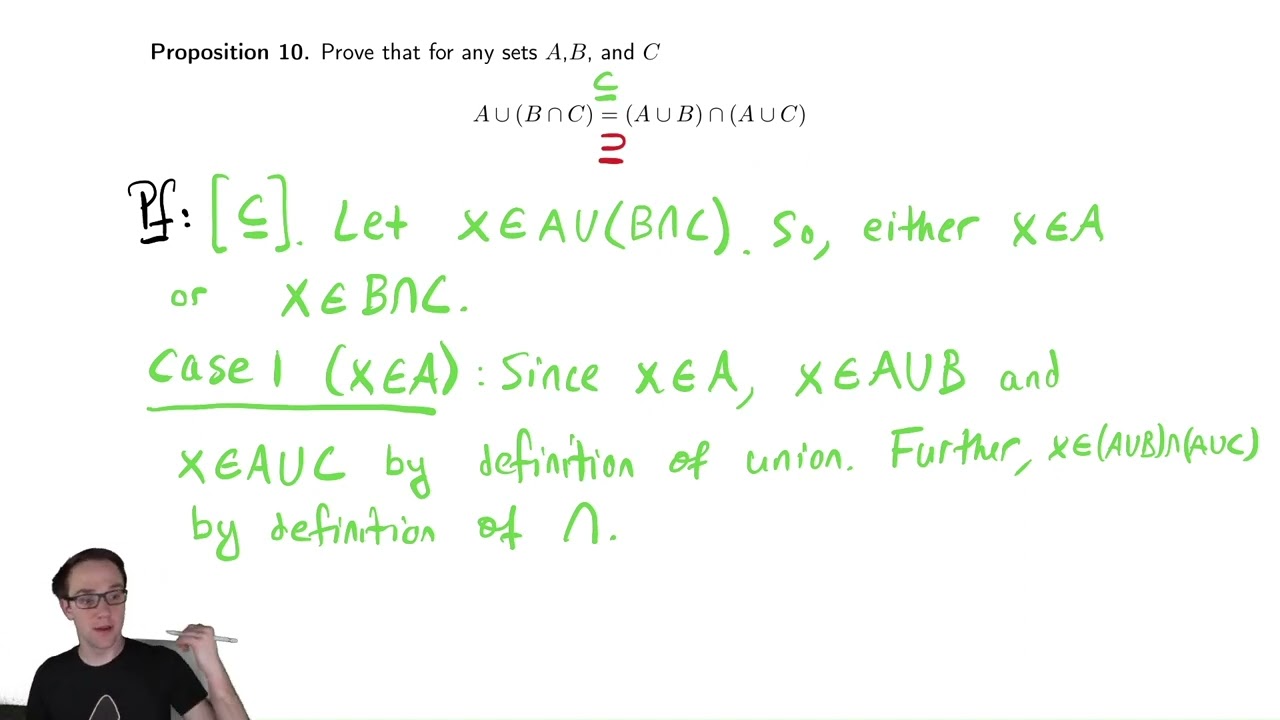 Proposition 10. Prove that for any sets A,B, and C
⊆
A ∪ (B ∩ C) = (A ∪ B) ∩ (A ∪ C)
⊇
Pf: [⊆]. Let x∈A∪(B∩C). So, either x∈A
or x∈B∩C.
Case 1 (x∈A): Since x∈A, x∈A∪B and
x∈A∪C by definition of union. Further, x∈(A∪B)∩(A∪C)
by definition of ∩.